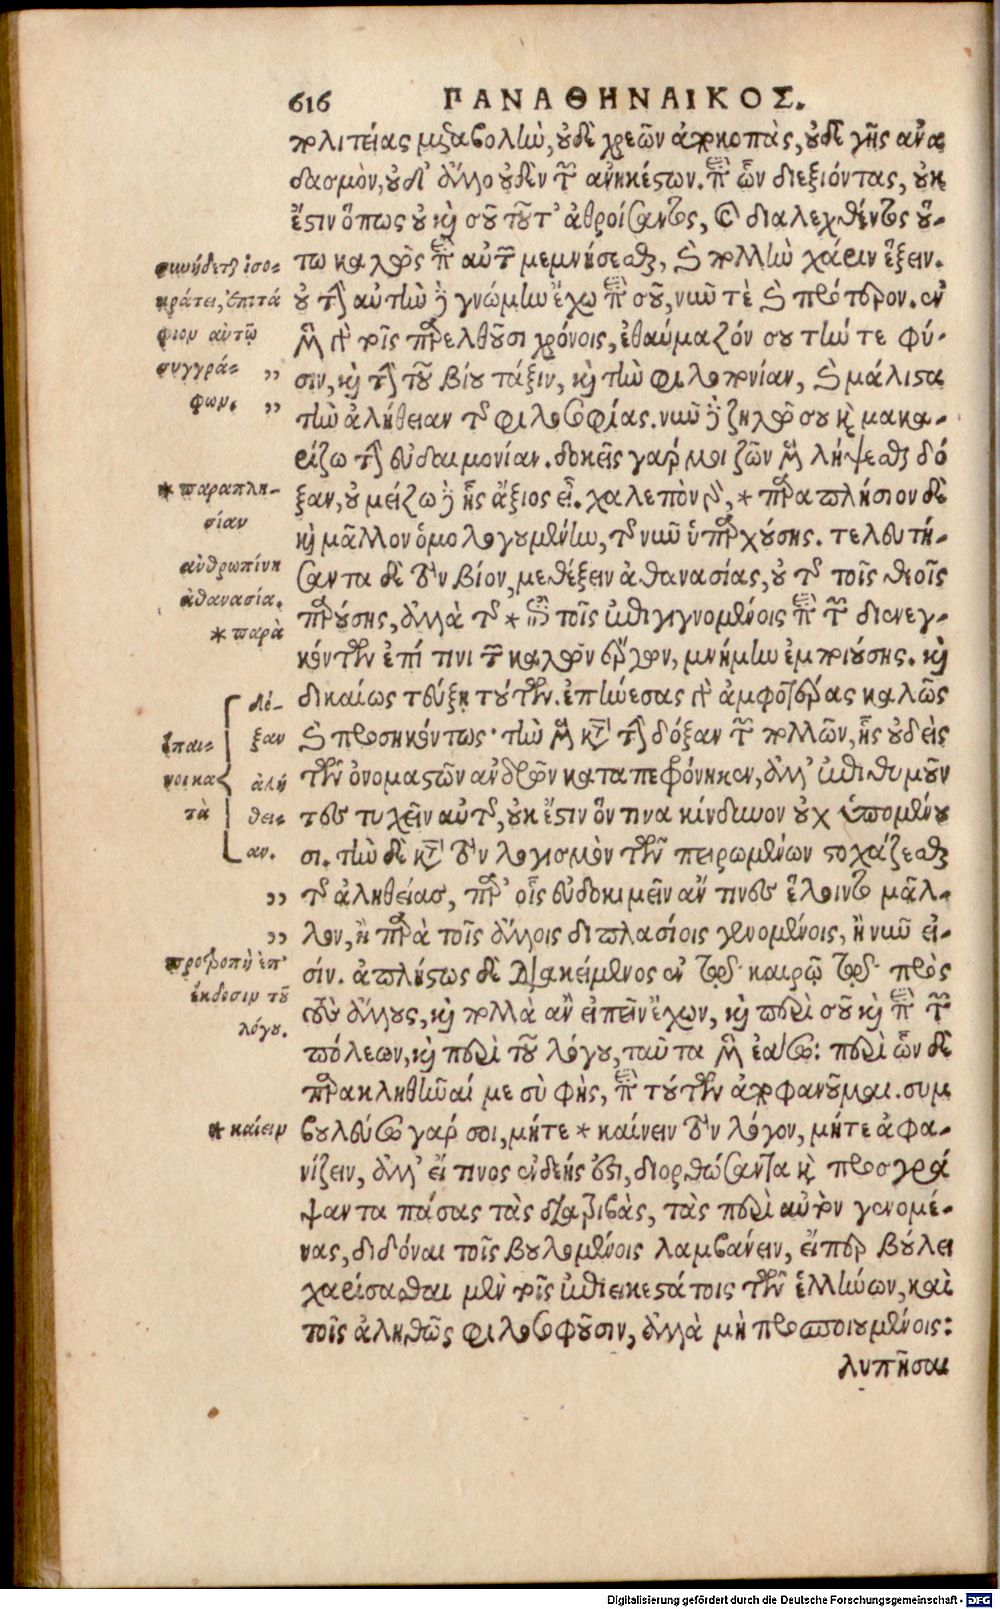 616 ΠΑΝΑΘΗΝΑΙΚΟΣ.
πολιτείας μεταβολὴν, οὐδὲ χρεῶν ἀποκοπὰς, οὐδὲ γῆς ἀνα
δασμὸν, οὐδ' ἄλλο οὐδὲν τῶν ἀνηκέστων. ὑπὲρ ὧν διεξιόντας, οὐκ
ἔστιν ὅπως οὐ καὶ σοῦ τοῦτ' ἀθροίσαντες, καὶ διαλεχθέντες οὕ-
τω καλῶς ὑπὲρ αὐτῶν μεμνήσεσθαι, καὶ πολλὴν χάριν ἕξειν.
οὐ τὴν αὐτὴν δὲ γνώμην ἔχω περὶ σοῦ, νῦν τὲ καὶ πρότερον. ἐν
μὲν γὰρ τοῖς παρελθοῦσι χρόνοις, ἐθαύμαζόν σου τήν τε φύ-
σιν, καὶ τὴν τοῦ βίου τάξιν, καὶ τὴν φιλοπονίαν, καὶ μάλιστα
τὴν ἀλήθειαν τῆς φιλοσοφίας. νῦν δὲ ζηλῶ σου καὶ μακα-
ρίζω τὴν εὐδαιμονίαν. δοκεῖς γάρ μοι ζῶν μὲν λήψεσθαι δό
ξαν, οὐ μείζω δὲ ἧς ἄξιος εἶ. χαλεπὸν γάρ, * παραπλήσιον δὲ
καὶ μᾶλλον ὁμολογουμένην, τῆς νῦν ὑπαρχούσης. τελευτή-
σαντα δὲ τὸν βίον, μεθέξειν ἀθανασίας, οὐ τῆς τοῖς θεοῖς
παρούσης, ἀλλὰ τῆς * τοῖς ἐπιγιγνομένοις περὶ τῶν διενεγ-
κόντων ἐπί τινι τῶν καλῶν ἔργων, μνήμην ἐμποιούσης. καὶ
δικαίως τεύξῃ τούτων. ἐπῄνεσας γὰρ ἀμφοτέρας καλῶς
καὶ προσηκόντως· τὴν μὲν κατὰ τὴν δόξαν τῶν πολλῶν, ἧς οὐδεὶς
τῶν ὀνομαστῶν ἀνδρῶν καταπεφρόνηκεν, ἀλλ' ἐπιθυμοῦν
τες τυχεῖν αὐτῆς, οὐκ ἔστιν ὅντινα κίνδυνον οὐχ ὑπομένου
σι. τὴν δὲ κατὰ τὸν λογισμὸν τῶν πειρωμένων στοχάζεσθαι
τῆς ἀληθείας, παρ' οἷς εὐδοκιμεῖν ἄν τινες ἕλοιντο μᾶλ-
λον, ἢ παρὰ τοῖς ἄλλοις διπλασίοις γενομένοις, ἢ νῦν εἰ-
σίν. ἀπλήστως δὲ διακείμενος ἐν τῷδε καιρῷ τῷδε πρὸς
τοὺς ἄλλους, καὶ πολλὰ ἂν εἰπεῖν ἔχων, καὶ περὶ σοῦ καὶ περὶ τῶν
πόλεων, καὶ περὶ τοῦ λόγου, ταῦτα μὲν ἐάσω: περὶ ὧν δὲ
παρακληθῆναί με σὺ φῂς, περὶ τούτων ἀποφανοῦμαι. συμ
βουλεύω γάρ σοι, μήτε * καίνειν τὸν λόγον, μήτε ἀφα-
νίζειν, ἀλλ' εἴ τινος ἐνδεής ἐστι, διορθώσαντα καὶ προσγρά
ψαντα πάσας τὰς διατριβὰς, τὰς περὶ αὐτὸν γενομέ-
νας, διδόναι τοῖς βουλομένοις λαμβάνειν, εἴπερ βούλει
χαρίσασθαι μὲν τοῖς ἐπιεικεστάτοις τῶν ἑλλήνων, καὶ
τοῖς ἀληθῶς φιλοσοφοῦσιν, ἀλλὰ μὴ προσποιουμένοις:
λυπῆσαι
συνήδεται ἰσο-
κράτει, ἐπιτά
φιον αὐτῷ
συγγρά- ,,
φων. ,,
* παραπλη-
σίαν
ἀνθρωπίνη
ἀθανασία.
* παρὰ
ἔπαι-
νοι κα
τὰ
δό-
ξαν
ἀλή
θει-
αν.
,,
,,
προτροπὴ ἐπ'
ἔκδοσιν τοῦ
λόγου.
* καίειν
Digitalisierung gefördert durch die Deutsche Forschungsgemeinschaft - DFG